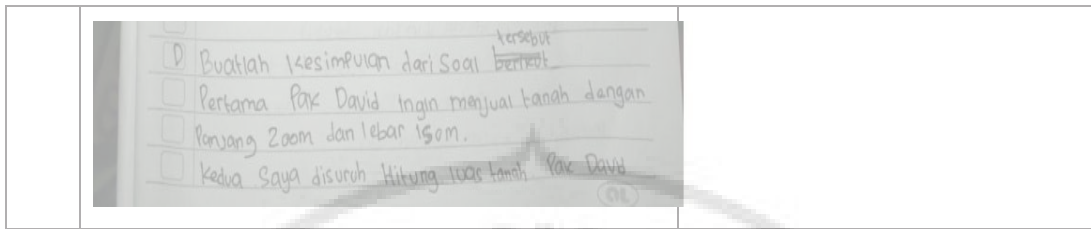 tersebut
D Buatlah kesimpulan dari soal berikut
Pertama Pak David ingin menjual tanah dengan
Panjang 200m dan lebar 150m.
Kedua Saya disuruh Hitung luas tanah Pak David